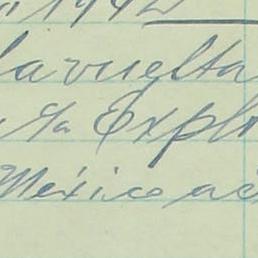 1942
la vuelta
Explo
México a